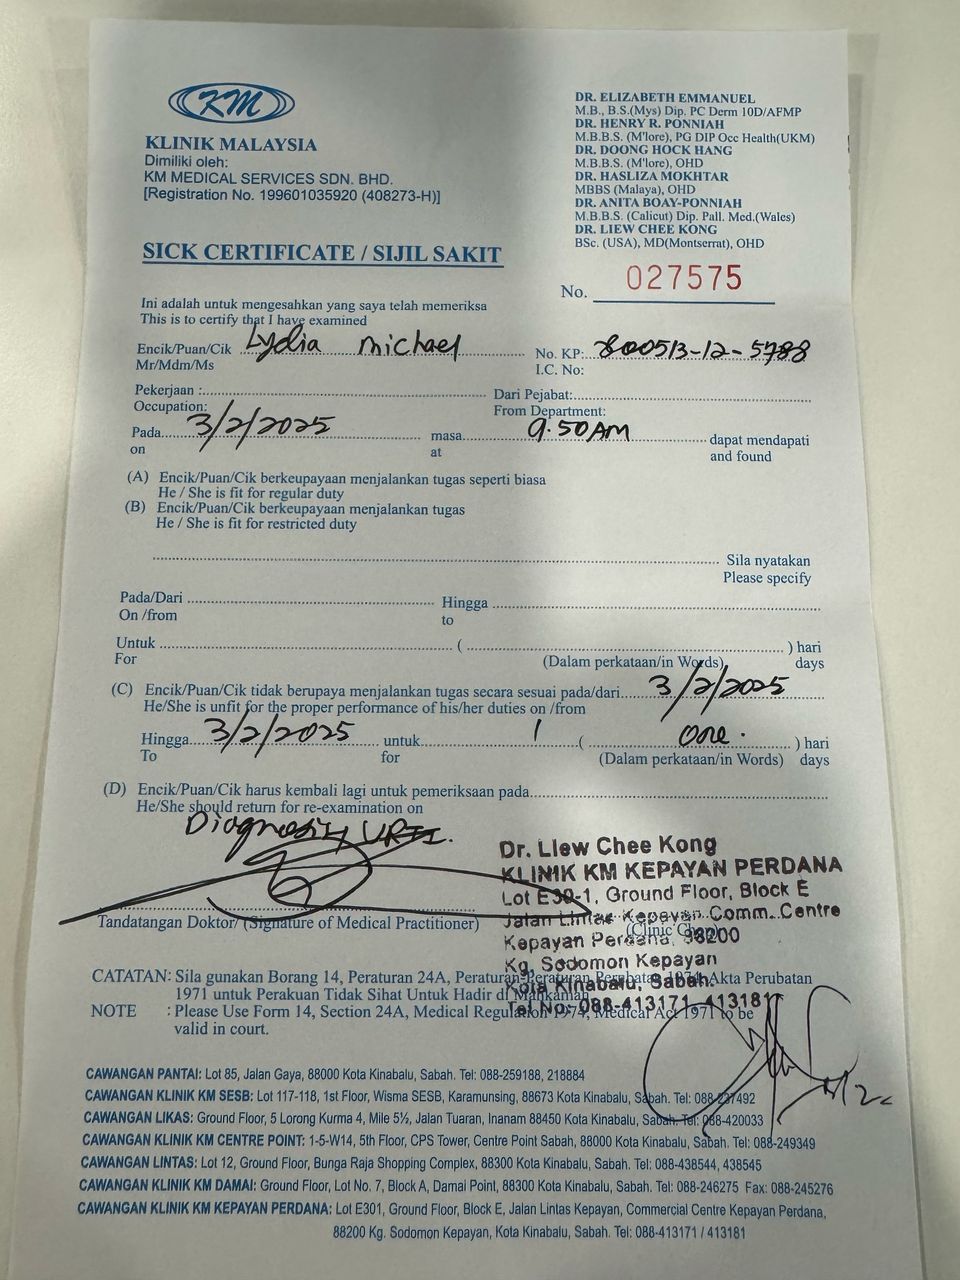 KM
KLINIK MALAYSIA
Dimiliki oleh:
KM MEDICAL SERVICES SDN. BHD.
[Registration No. 199601035920 (408273-H)]
DR. ELIZABETH EMMANUEL
M.B., B.S.(Mys) Dip. PC Derm 10D/AFMP
DR. HENRY R. PONNIAH
M.B.B.S. (M'lore), PG DIP Occ Health(UKM)
DR. DOONG HOCK HANG
M.B.B.S. (M'lore), OHD
DR. HASLIZA MOKHTAR
MBBS (Malaya), OHD
DR. ANITA BOAY-PONNIAH
M.B.B.S. (Calicut) Dip. Pall. Med.(Wales)
DR. LIEW CHEE KONG
BSc. (USA), MD(Montserrat), OHD
SICK CERTIFICATE / SIJIL SAKIT
No. 027575
Ini adalah untuk mengesahkan yang saya telah memeriksa
This is to certify that I have examined
Encik/Puan/Cik Lydia michael No. KP: 800513-12-5788
Mr/Mdm/Ms I.C. No:
Pekerjaan : Dari Pejabat:
Occupation: From Department:
Pada 3/2/2025 masa 9.50AM dapat mendapati
on at and found
(A) Encik/Puan/Cik berkeupayaan menjalankan tugas seperti biasa
He / She is fit for regular duty
(B) Encik/Puan/Cik berkeupayaan menjalankan tugas
He / She is fit for restricted duty
Sila nyatakan
Please specify
Pada/Dari Hingga
On /from to
Untuk ( ) hari
For (Dalam perkataan/in Words) days
(C) Encik/Puan/Cik tidak berupaya menjalankan tugas secara sesuai pada/dari 3/2/2025
He/She is unfit for the proper performance of his/her duties on /from
Hingga 3/2/2025 untuk 1 ( one. ) hari
To for (Dalam perkataan/in Words) days
(D) Encik/Puan/Cik harus kembali lagi untuk pemeriksaan pada
He/She should return for re-examination on
Diagnosis, URTI.
Dr. Liew Chee Kong
KLINIK KM KEPAYAN PERDANA
Lot E30-1, Ground Floor, Block E
Jalan Lintas Kepayan Comm. Centre
Kepayan Perdana, 88200
Kg. Sodomon Kepayan
Kota Kinabalu, Sabah.
Tel No: 088-413171, 413181
Tandatangan Doktor/ (Signature of Medical Practitioner) (Clinic Chop)
CATATAN: Sila gunakan Borang 14, Peraturan 24A, Peraturan-Peraturan Perubatan 1974, Akta Perubatan
1971 untuk Perakuan Tidak Sihat Untuk Hadir di Mahkamah
NOTE : Please Use Form 14, Section 24A, Medical Regulation 1974, Medical Act 1971 to be
valid in court.
CAWANGAN PANTAI: Lot 85, Jalan Gaya, 88000 Kota Kinabalu, Sabah. Tel: 088-259188, 218884
CAWANGAN KLINIK KM SESB: Lot 117-118, 1st Floor, Wisma SESB, Karamunsing, 88673 Kota Kinabalu, Sabah. Tel: 088-237492
CAWANGAN LIKAS: Ground Floor, 5 Lorong Kurma 4, Mile 5½, Jalan Tuaran, Inanam 88450 Kota Kinabalu, Sabah. Tel: 088-420033
CAWANGAN KLINIK KM CENTRE POINT: 1-5-W14, 5th Floor, CPS Tower, Centre Point Sabah, 88000 Kota Kinabalu, Sabah. Tel: 088-249349
CAWANGAN LINTAS: Lot 12, Ground Floor, Bunga Raja Shopping Complex, 88300 Kota Kinabalu, Sabah. Tel: 088-438544, 438545
CAWANGAN KLINIK KM DAMAI: Ground Floor, Lot No. 7, Block A, Damai Point, 88300 Kota Kinabalu, Sabah. Tel: 088-246275 Fax: 088-245276
CAWANGAN KLINIK KM KEPAYAN PERDANA: Lot E301, Ground Floor, Block E, Jalan Lintas Kepayan, Commercial Centre Kepayan Perdana,
88200 Kg. Sodomon Kepayan, Kota Kinabalu, Sabah. Tel: 088-413171 / 413181